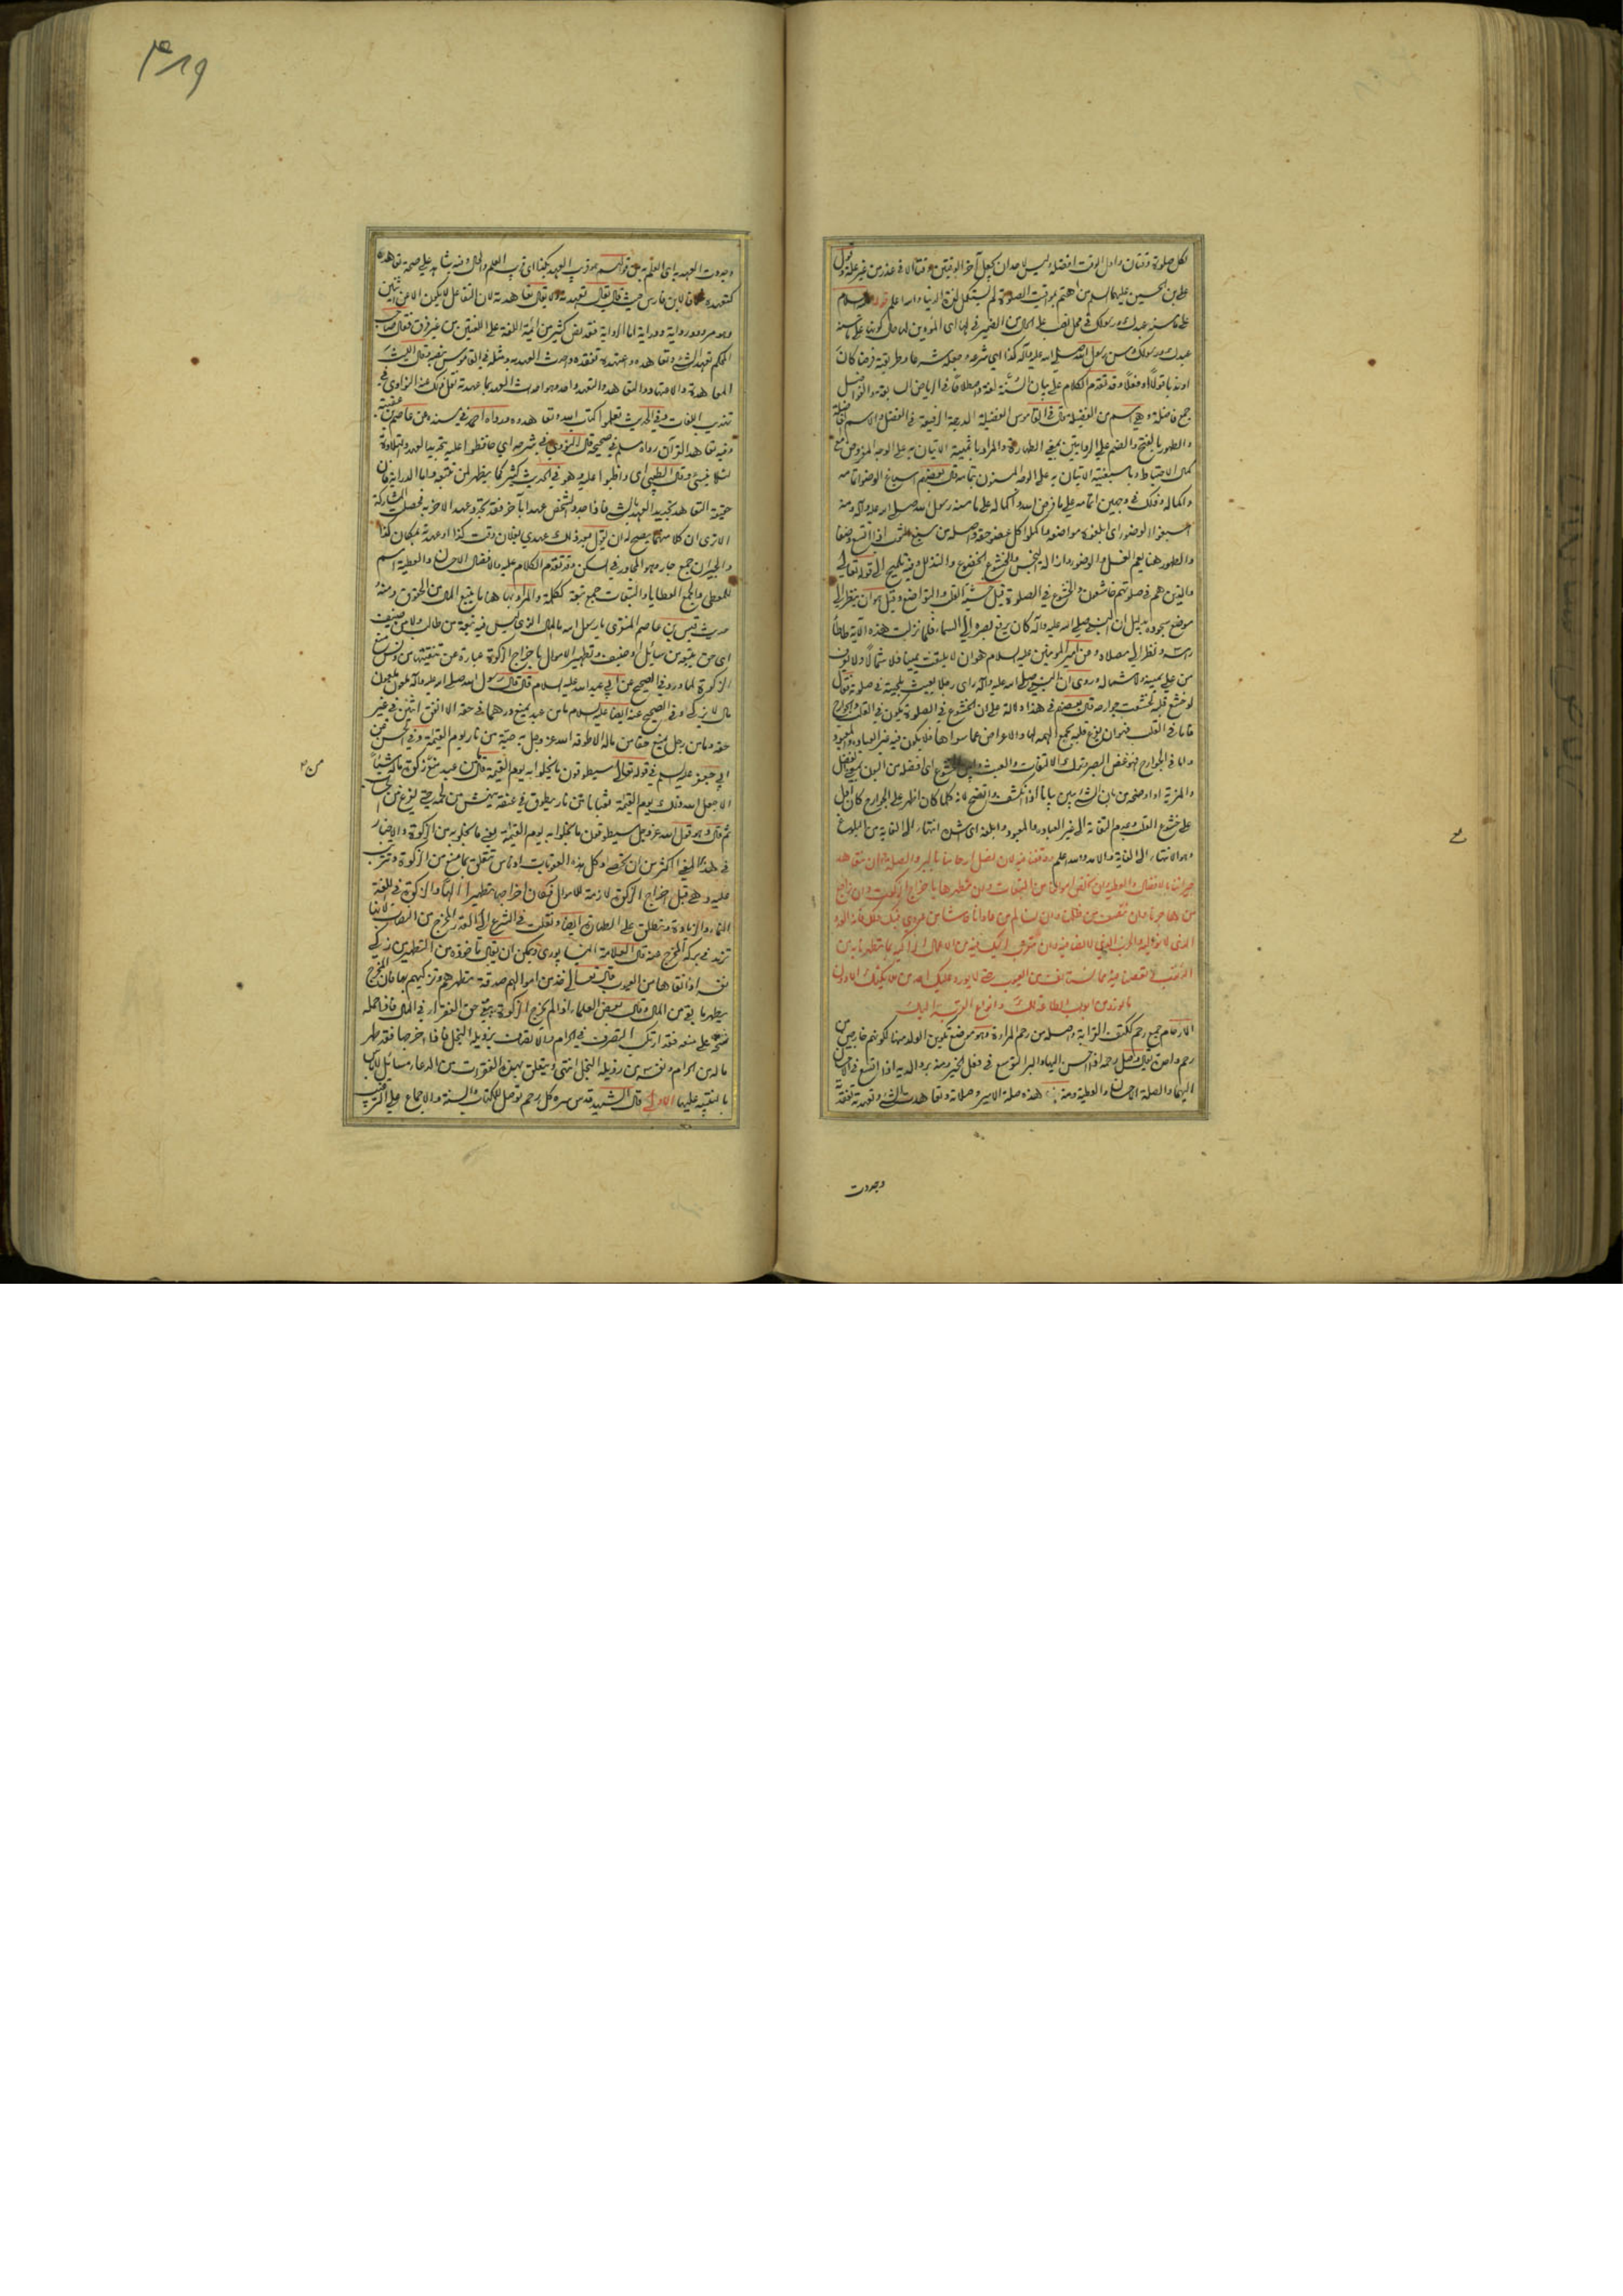 لكل صلوة وقتان واول الوقت افضله وليس لاحد ان يجعل آخر الوقتين وقتا الا في عذر من غير علة وقول
علي بن الحسين عليهما السلام من اهتم بمواقيت الصلوة لم يستكمل لذة الدنيا والله اعلم قوله عليه السلام
على ما سنه عبدك ورسولك في محل نصب على الحال من الضمير في لها اي المؤدين لها حال كونها على ما سنه
عبدك ورسولك وسن رسول الله صلى الله عليه وآله كذا اي شرعه وجعله شرعا وطريقة فرضا كان
او ندبا قولا او فعلا وقد تقدم الكلام على بيان السنة لغة واصطلاحا في الرياض السابقة والفواضل
جمع فاضلة وهي اسم من الفضيلة وقال في القاموس الفضيلة الدرجة الرفيعة في الفضل والاسم الفاضلة
والطهور بالفتح والضم على الروايتين بمعنى الطهارة والمراد باتميته الاتيان به على الوجه المفروض مع
كمال الاحتياط وباسبغيته الاتيان به على الوجه المسنون بتمامه وقال بعضهم اسباغ الوضوء اتمامه
واكماله وذلك في وجهين اتمامه على ما فرض الله واكماله على ما سنه رسول الله صلى الله عليه وآله ومنه
اسبغوا الوضوء اي ابلغوه مواضعه واكملوا كل عضو حقه واصله من سبغ الثوب اذا اتسع وضفا
والطهور هنا يعم الغسل والوضوء وازالة النجس والخشوع الخضوع والتذلل وفيه تلميح الى قوله تعالى
والذين هم في صلوتهم خاشعون والخشوع في الصلوة قيل خشية القلب والتواضع وقيل هو ان ينظر الى
موضع سجوده بدليل ان النبي صلى الله عليه وآله كان يرفع بصره الى السماء فلما نزلت هذه الآية طأطأ
راسه ونظر الى مصلاه وعن امير المومنين عليه السلام هو ان لا يلتفت يمينا ولا شمالا ولا يعرف
من على يمينه ولا شماله وروى ان النبي صلى الله عليه وآله راى رجلا يعبث بلحيته في صلوته فقال
لو خشع قلبه لخشعت جوارحه قال بعضهم في هذا دلالة على ان الخشوع في الصلوة يكون في القلب والجوارح
فاما في القلب فهو ان يفرغ قلبه بجمع الهمة لها والاعراض عما سواها فلا يكون فيه غير العبادة والمعبود
واما في الجوارح فهو غض البصر وترك الالتفات والعبث وابين خشوع اي افضله من البون بمعنى الفضل
والمزية او اوضحه من بان الشيء يبين بيانا اذا انكشف واتضح لانه كلما كان اظهر على الجوارح كان ادل
على خشوع القلب وعدم التفاته الى غير العبادة والمعبود وابلغه اي اشده انتهاء الى الغاية من البلوغ
وهو الانتهاء الى الغاية والامد والله اعلم ووفقنا فيه لان نصل ارحامنا بالبر والصلة وان نتعاهد
جيراننا بالافضال والعطية وان نخلص اموالنا من التبعات وان نطهرها باخراج الزكوات وان نراجع
من هاجرنا وان ننصف من ظلمنا وان نسالم من عادانا حاشا من عودي فيك ولك فانه العدو
الذي لا نواليه والحزب الذي لا نصافيه وان نتقرب اليك فيه من الاعمال الزاكية بما تطهرنا به من
الذنوب وتعصمنا فيه مما نستانف من العيوب حتى لا يورد عليك احد من ملائكتك الا دون
ما نورد من ابواب الطاعة لك وانواع القربة اليك
الارحام جمع رحم ككتف القرابة واصله من رحم المراءة وهو موضع تكوين الولد منها لكونهم خارجين من
رحم واحد يقال وصل رحمه اذا احسن اليها والبر التوسع في فعل الخير ومنه بر والديه اذا اتسع في الاحسان
اليهما والصلة الاحسان والعطية ومنه هذه صلة الامير وصلاته وتعاهدت الشيء وتعهدته تفقدته
وجددت
۴۱۹
وجددت العهد به اي العلم به من قولهم هو قريب العهد بكذا اي قريب العلم والحال وفيه شاهد على صحة تعاهده
كتعهده خلافا لابن فارس حيث قال يقال تعهدته ولا يقال تعاهدته لان التفاعل لا يكون الا عن اثنين
وهو مردود رواية ودراية اما الرواية فقد نص كثير من ائمة اللغة على اللغتين من غير فرق فقال صاحب
المحكم تعهد الشيء وتعاهده واعتهده تفقده واحدث العهد به ومثله في القاموس بنصه وقال الليث
المعاهدة والاعتهاد والتعاهد والتعهد واحد وهو احداث العهد بما عهدته نقل ذلك عنه النواوي في
تهذيب اللغات وفي الحديث تعلموا كتاب الله وتعاهدوه رواه احمد في مسنده عن عقبة بن عامر
وفيه تعاهدوا القرآن رواه مسلم في صحيحه قال النووي في شرحه اي حافظوا عليه بتجديد العهد والتلاوة
لئلا ينسى وقال الطيبي اي واظبوا عليه وهو في الحديث كثير كما يظهر لمن تتبعه واما الدراية فلان
حقيقة التعاهد تجديد العهد بالشيء فاذا احدث الشخص عهدا بآخر فقد تجدد عهد الآخر به فحصلت المشاركة
الا ترى ان كلا منهما يصح له ان يقول مجرد ذلك عهدي بفلان وقت كذا او عهدته بمكان كذا
والجيران جمع جار وهو المجاور في السكن وقد تقدم الكلام عليه والافضال الاحسان والعطية اسم
للمعطى والجمع العطايا والتبعات جمع تبعة ككلمة والمراد بها هنا ما يتبع المال من الحقوق ومنه
حديث قيس بن عاصم المنقري يا رسول الله ما المال الذي ليس فيه تبعة من طالب ولا من ضيف
اي حق يتبعه من سائل او ضيف وتطهير الاموال باخراج الزكوة عبارة عن تنقيتها من دنس منع
الزكوة كما ورد في الصحيح عن ابي عبد الله عليه السلام قال قال رسول الله صلى الله عليه وآله ملعون ملعون
مال لا يزكى وفي الصحيح عنه ايضا عليه السلام ما من عبد يمنع درهما في حقه الا انفق اثنين في غير
حقه وما من رجل يمنع حقا من ماله الا طوقه الله عز وجل به حية من نار يوم القيمة وفي الحسن عن
ابي جعفر عليه السلم في قوله تعالى سيطوقون ما بخلوا به يوم القيمة قال ما من عبد منع من زكوة ماله شيئا
الا جعل الله ذلك يوم القيمة ثعبانا من نار يطوق في عنقه ينهش من لحمه حتى يفرغ من الحساب
ثم قال وهو قول الله عز وجل سيطوقون ما بخلوا به يوم القيمة يعني ما بخلوا به من الزكوة والاخبار
في هذا المعنى اكثر من ان تحصى وكل هذه العقوبات ادناس تتعلق بما منع من الزكوة وتترتب
عليه وهي قبل اخراج الزكوة لازمة للاموال فكان اخراجها تطهيرا لها والزكوة في اللغة
النماء والزيادة وتطلق على الطهارة ايضا ونقلت في الشرع الى القدر المخرج من النصاب لانها
تزيد في بركة المخرج عنه قال العلامة النيسابوري ويمكن ان يقال ماخوذ من التطهير من زكى
نفسه اذا نقاها من العيوب قال تعالى خذ من اموالهم صدقة تطهرهم وتزكيهم بها فان المخرج
يطهر ما بقي من المال وقال بعض العلماء اذا لم يخرج الزكوة يبقى حق الفقراء في المال فاذا حمله
شحه على منعه فقد ارتكب التصرف في الحرام والاتصاف برذيلة البخل فاذا اخرجها فقد طهر
ماله من الحرام ونفسه من رذيلة البخل انتهى ويتعلق بهذه الفقرات من الدعاء مسائل لا باس
بالتنبيه عليها الاولى قال الشهيد قدس سره كل رحم توصل للكتاب والسنة والاجماع على الترغيب